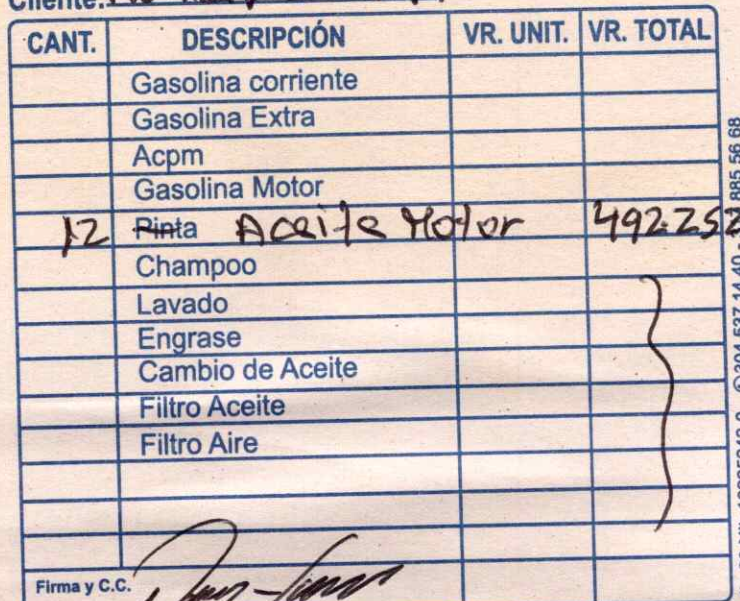 Cliente:
CANT. DESCRIPCIÓN VR. UNIT. VR. TOTAL
Gasolina corriente
Gasolina Extra
Acpm
Gasolina Motor
12 Pinta Aceite Motor 492.252
Champoo
Lavado
Engrase
Cambio de Aceite
Filtro Aceite
Filtro Aire
Firma y C.C.
885 56 68